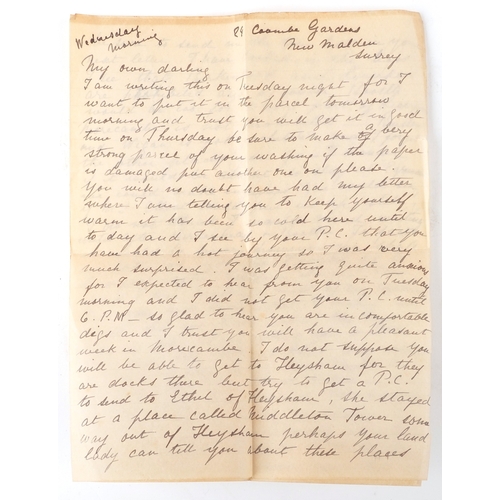 Wednesday Morning
84 Coombe Gardens
New Malden
Surrey
My own darling
I am writing this on Tuesday night for I
want to put it in the parcel tomorrow
morning and trust you will get it in good
time on Thursday be sure to make a very
strong parcel of your washing if the paper
is damaged put another one on please.
You will no doubt have had my letter
where I am telling you to keep yourself
warm it has been so cold here until
to day and I see by your P.C. that you
have had a hot journey so I was very
much surprised. I was getting quite anxious
for I expected to hear from you on Tuesday
morning and I did not get your P.C. until
6. P.M — so glad to hear you are in comfortable
digs and I trust you will have a pleasant
week in Morecambe I do not suppose you
will be able to get to Heysham for they
are docks there but try to get a P.C.
to send to Ethel of Heysham, she stayed
at a place called Middleton Tower some
way out of Heysham perhaps your land
lady can tell you about these places